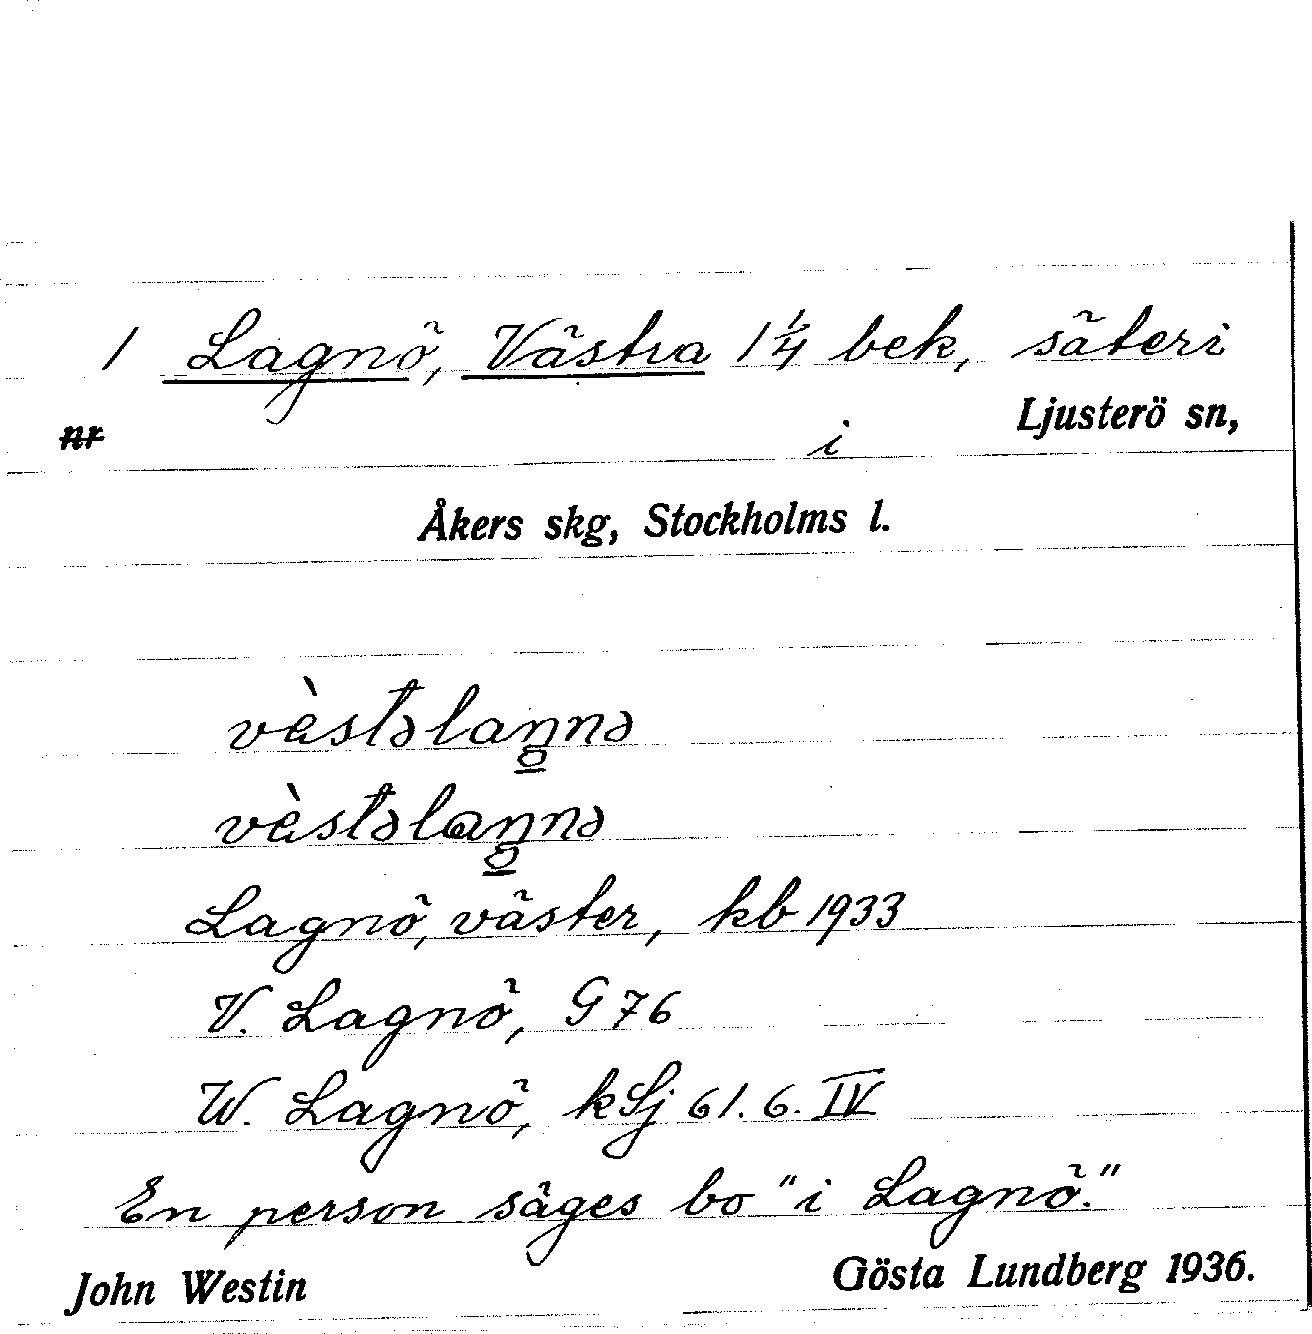 1 Lagnö, Västra 1 1/4 bek, säteri
nr i Ljusterö sn,
Åkers skg, Stockholms l.
Lagnö, väster, kb 1933
V. Lagnö, G 76
W. Lagnö, kSj 61. 6. IV
En person säges bo "i Lagnö."
John Westin Gösta Lundberg 1936.